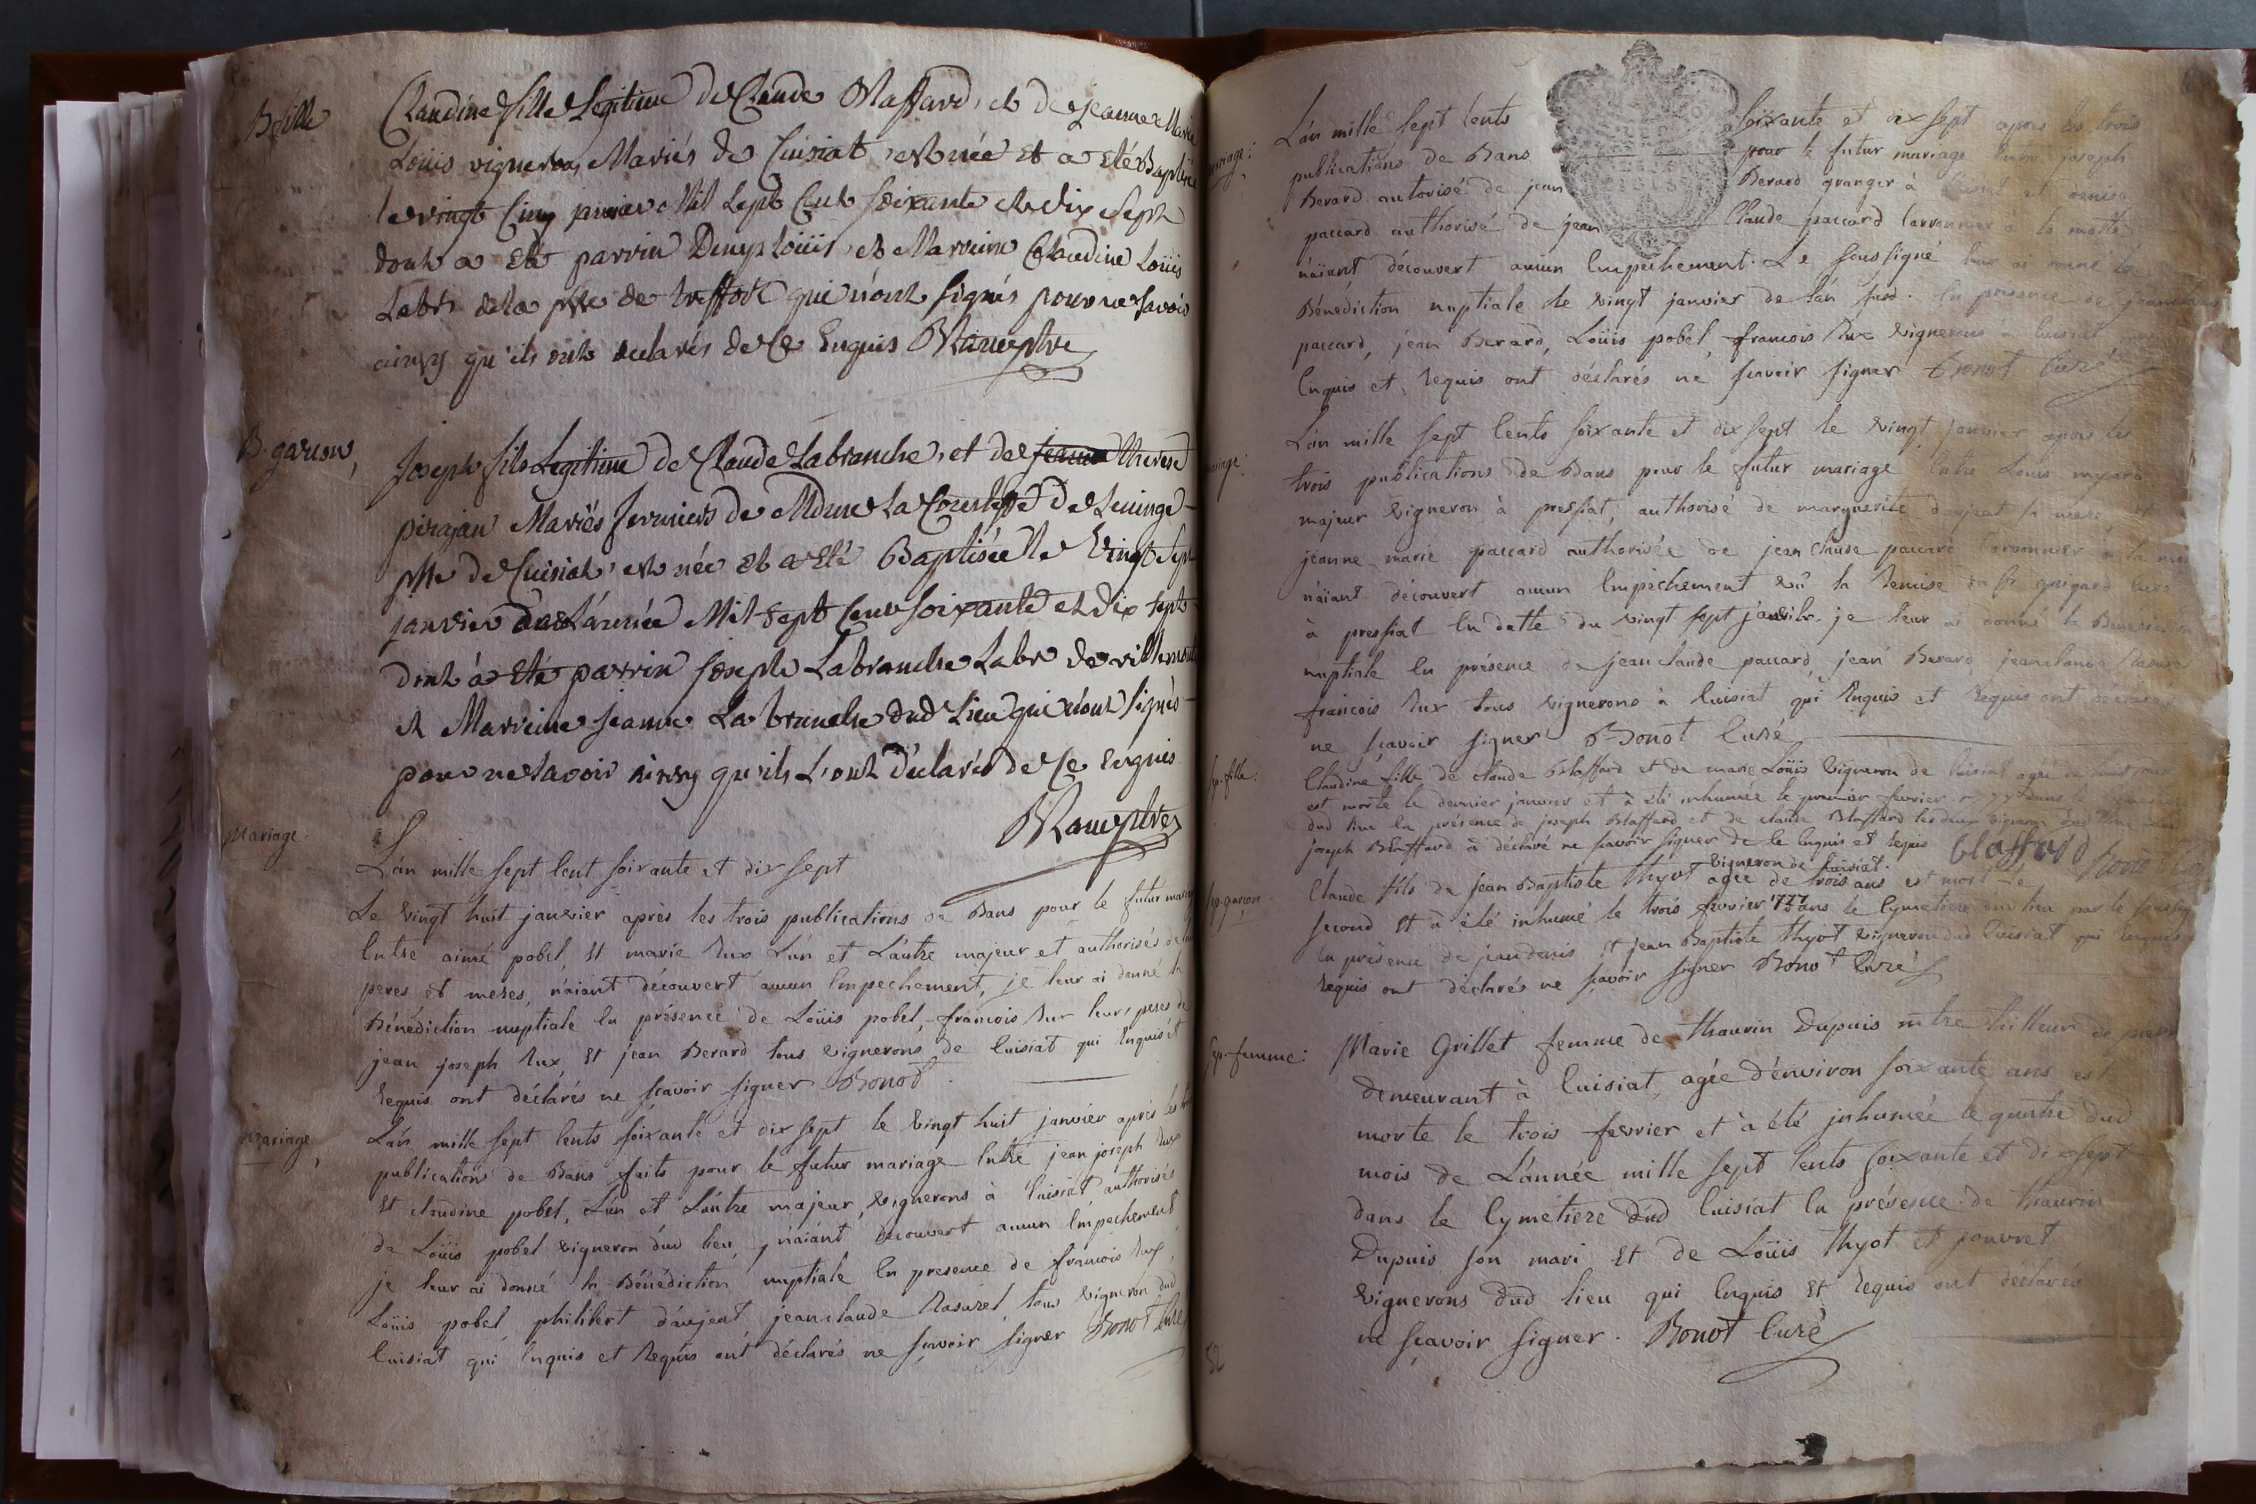 B. fille
Claudine fille Legitime de Claude Blaffard, et de jeanne Marie
Loüis vignerons Mariés de Cuisiat, est née et a eté Baptisée
le vingt Cinq janvier Mil Sept Cent soixante et dix sept
dont a eté parrin Denys Loüis, et Marreine Claudine Loüis
Labrs de la psse de treffort qui n'ont signés pour ne savoir
ainsy qu'ils ont declarés de Ce Enquis
B. garcon,
Joseph fils Legitime de Claude Labranche, et de jeanne therese
perajan Mariés fermiers de Mdme La Comtesse De
psse de Cuisiat, est née et a eté Baptisée le vingt sept
janvier de L'année Mil sept Cent soixante et dix sept
dont à eté parrin joseph Labranche Labr de villemont
et Marreine jeanne La branche dud Lieu qui n'ont signés
pour ne savoir ainsy qu'ils L'ont déclarés de Ce Enquis
Mariage
L'an mille sept Cent soixante et dix sept
Le vingt huit janvier après les trois publications de Bans pour le futur mariage
Entre aimé pobel, Et marie Rux L'un et L'autre majeur et authorisés de
peres et meres, n'aiant découvert aucun Empechement, je leur ai donné la
Bénédiction nuptiale En présence de Loüis pobel, francois Rux leurs peres de
jean joseph Rux, Et jean Berard tous vignerons de Cuisiat qui Enquis et
Requis ont déclarés ne sçavoir signer Bonot
Mariage,
L'an mille sept Cents soixante et dix sept le vingt huit janvier après les trois
publications de Bans faits pour le futur mariage Entre jean joseph Rux
Et Claudine pobel, L'un et L'autre majeur, vignerons à Cuisiat authorisés
de Loüis pobel vigneron dud lieu, n'aiant découvert aucun Empechement
je leur ai donné la Bénédiction nuptiale En presence de francois Rux,
Loüis pobel philibert daujeat jean claude Rasurel tous vigneron dud
Cuisiat qui Enquis et Requis ont déclarés ne sçavoir signer Bonot Curé
mariage:
L'an mille sept Cents soixante et dix sept apres les trois
publications de Bans pour le futur mariage Entre joseph
Berard autorisé de jean Berard granger à et
paccard authorisé de jean Claude paccard à la motte
n'aiant découvert aucun Empechement. Le soussigné leur a donné la
Bénédiction nuptiale le vingt janvier de l'an susd. En présence de jean claude
paccard, jean Berard, Loüis pobel, francois Rux vignerons à Cuisiat
Enquis et Requis ont déclarés ne sçavoir signer Bonot Curé
mariage:
L'an mille sept Cents soixante et dix sept le vingt janvier apres les
trois publications de Bans pour le futur mariage Entre Louis
majeur vigneron à pressiat, authorisé de marguerite daujeat sa mere
jeanne marie paccard authorisée de jean claude paccard
n'aiant découvert aucun Empechement vû la Remise du Sr Curé
à pressiat En datte du vingt sept janvier je leur ai donné la Bénédiction
nuptiale En présence de jean claude paccard, jean Berard jean claude Rasurel
francois Rux tous vignerons à Cuisiat qui Enquis et Requis ont déclarés
ne sçavoir signer Bonot Curé
Sp. fille:
Claudine fille de claude Blaffard et de marie Loüis vigneron de Cuisiat agée de
est morte le dernier janvier et à été inhumée le premier fevrier 1777 dans le
dud lieu En présence de joseph Blaffard et de claude Blaffard
joseph Blaffard à déclaré ne sçavoir signer de ce Enquis et Requis blaffard Bonot
Sp. garçon
vigneron de Cuisiat.
Claude fils de jean Baptiste thyot agée de trois ans est mort le
second Et à été inhumé le trois fevrier 1777 dans le Cymetiere dud lieu par le
En présence de jean denis Et jean Baptiste thyot vigneron dud Cuisiat qui Enquis
Requis ont déclarés ne sçavoir signer Bonot Curé
Sp. femme:
Marie Grillet femme de thaurin Dupuis mtre tailleur de
demeurant à Cuisiat, agée d'environ soixante ans est
morte le trois fevrier et à été inhumée le quatre dud
mois de L'année mille sept Cents soixante et dix sept
dans le Cymetiere dud Cuisiat En présence de thaurin
Dupuis son mari Et de Loüis thyot et
vignerons dud lieu qui Enquis Et Requis ont déclarés
ne sçavoir signer. Bonot Curé
52